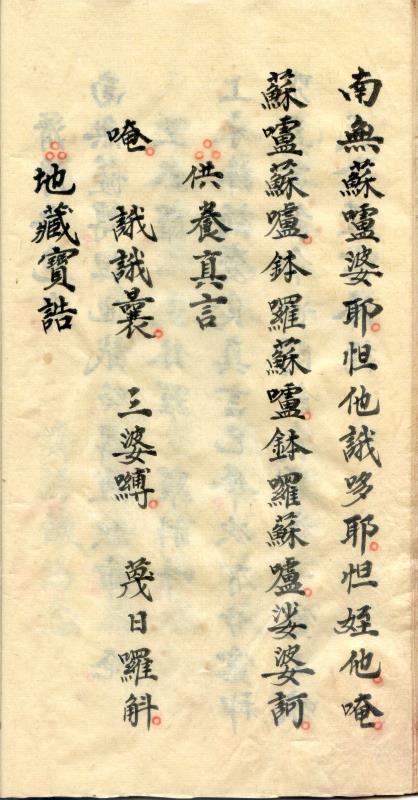 南無蘇嚧婆耶怛他誐哆耶怛姪他唵
蘇嚧蘇嚧鉢羅蘇嚧鉢羅蘇嚧娑婆訶
供養真言
唵 誐誐曩 三婆縛 韈日囉斛
地藏寶誥